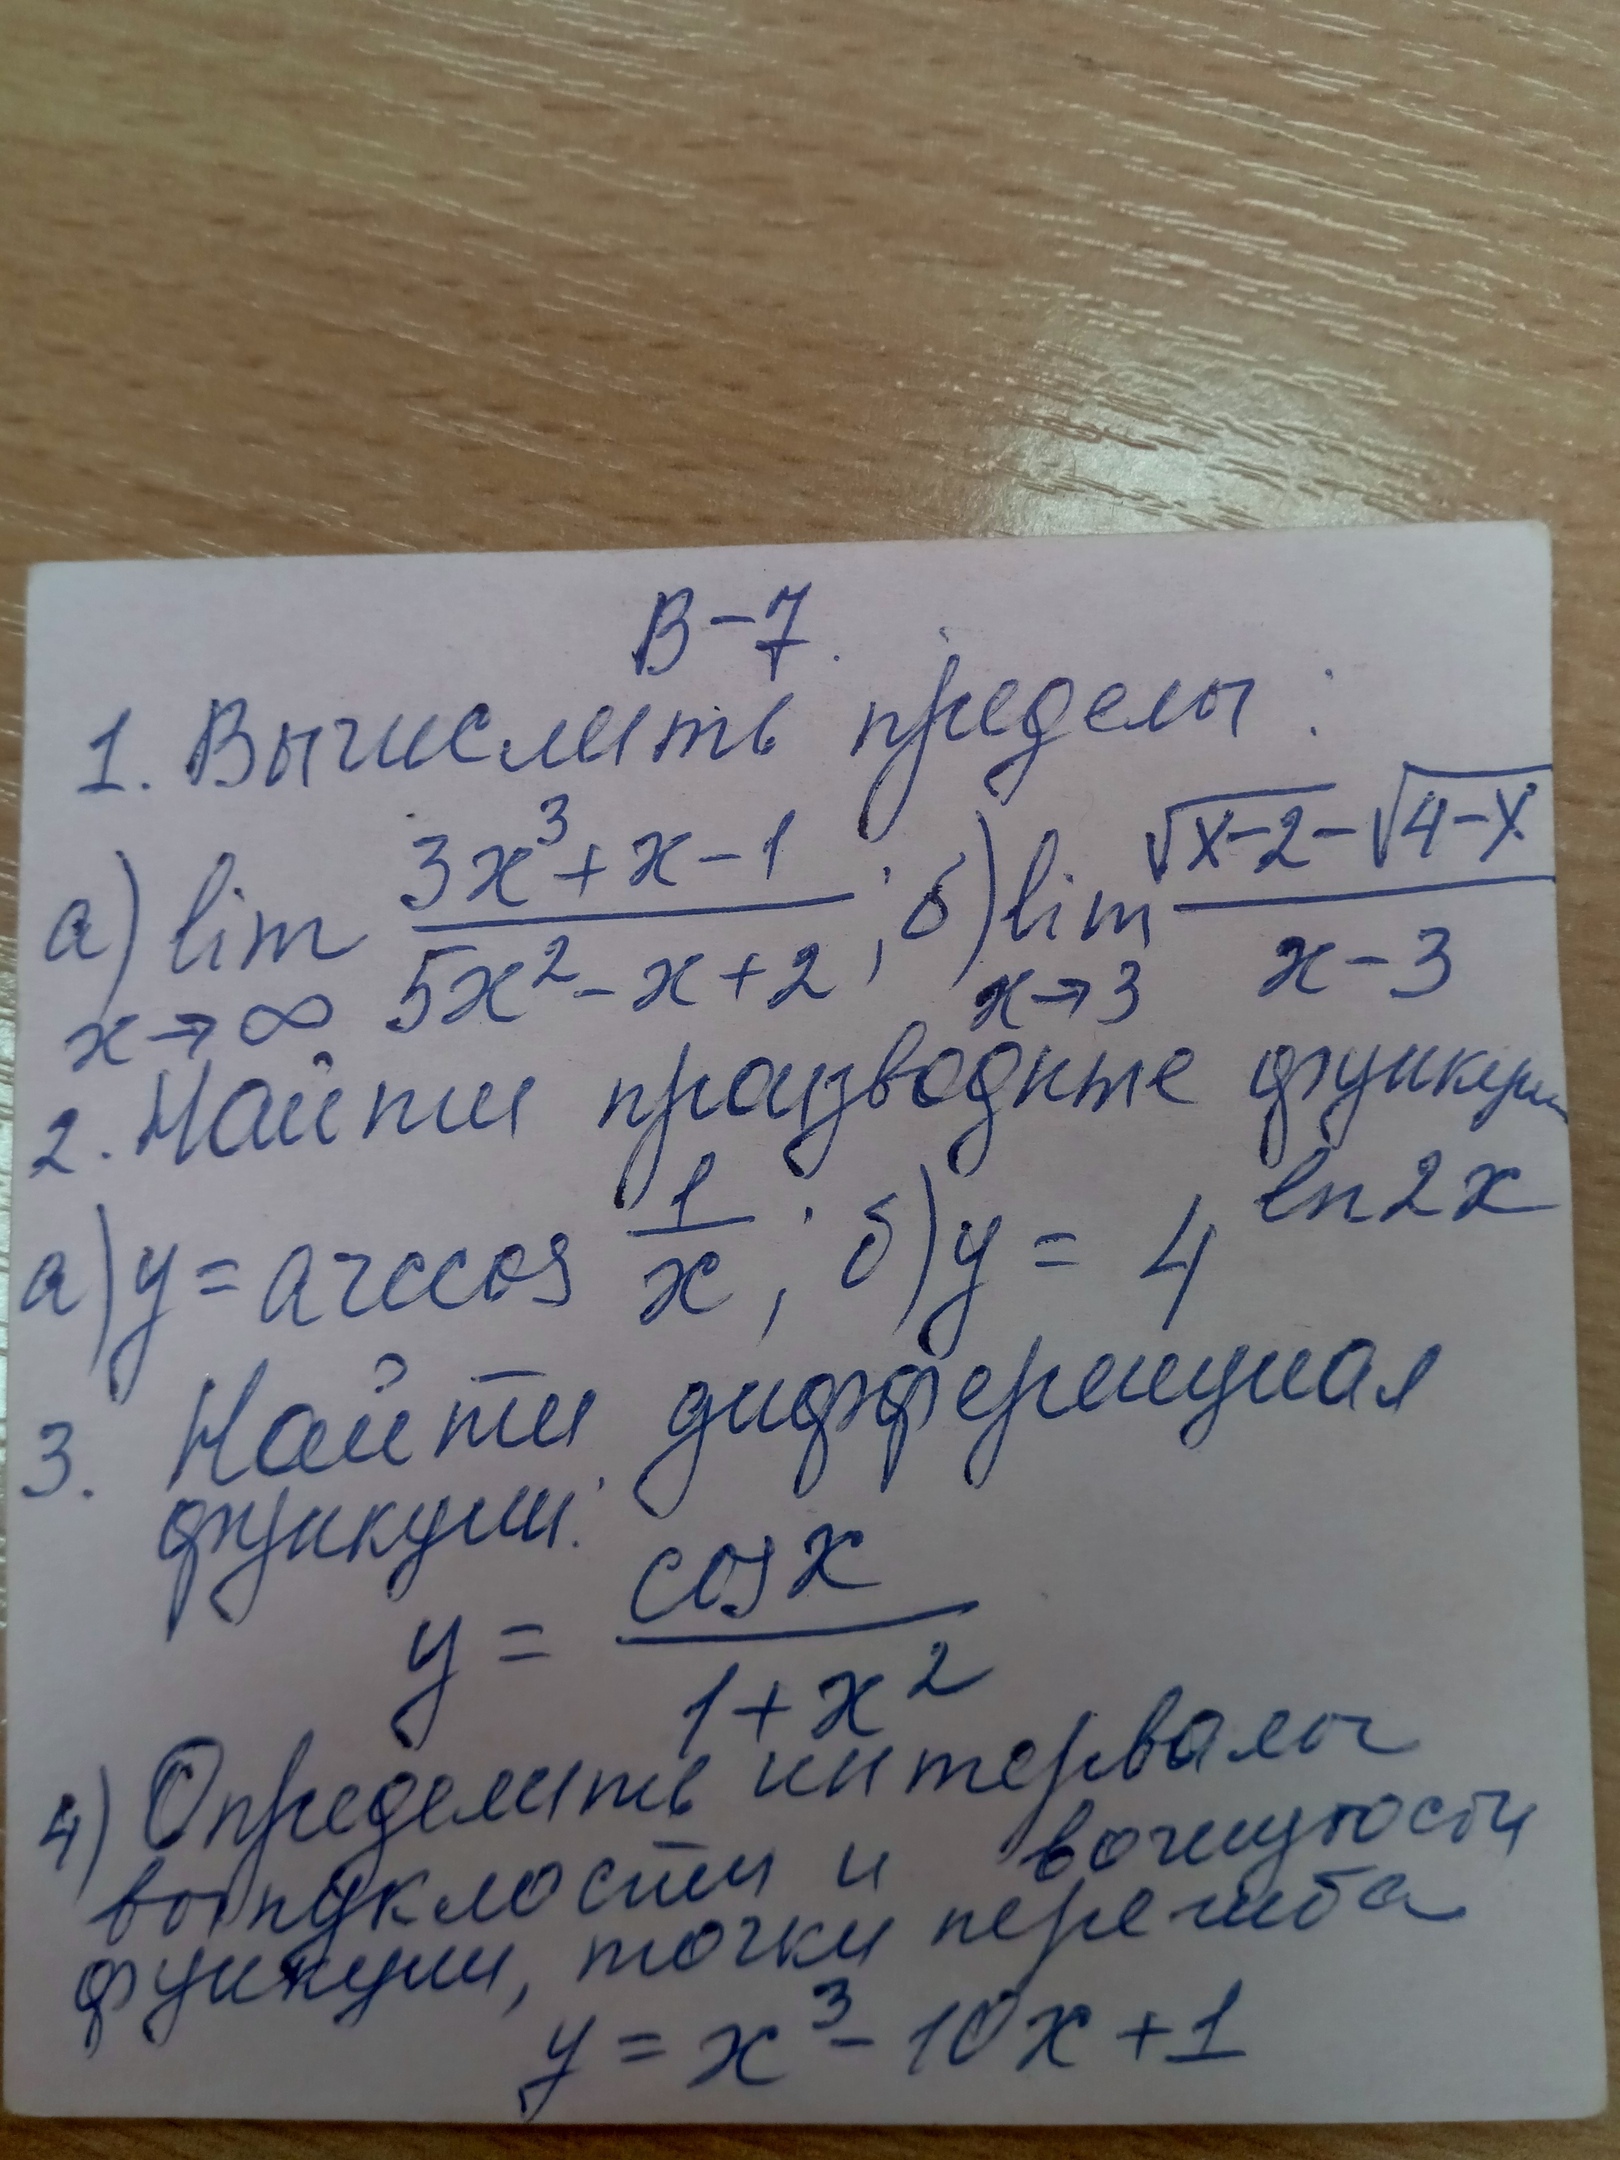 В-7.
1. Вычислить пределы:
а) lim x→∞ (3x³+x-1)/(5x²-x+2); б) lim x→3 (√(x-2)-√(4-x))/(x-3)
2. Найти производные функции
а) y = arccos 1/x; б) y = 4^(ln2x)
3. Найти дифференциал
функции:
y = cosx/(1+x²)
4) Определить интервалы
выпуклости и вогнутости
функции, точки перегиба
y = x³-10x+1